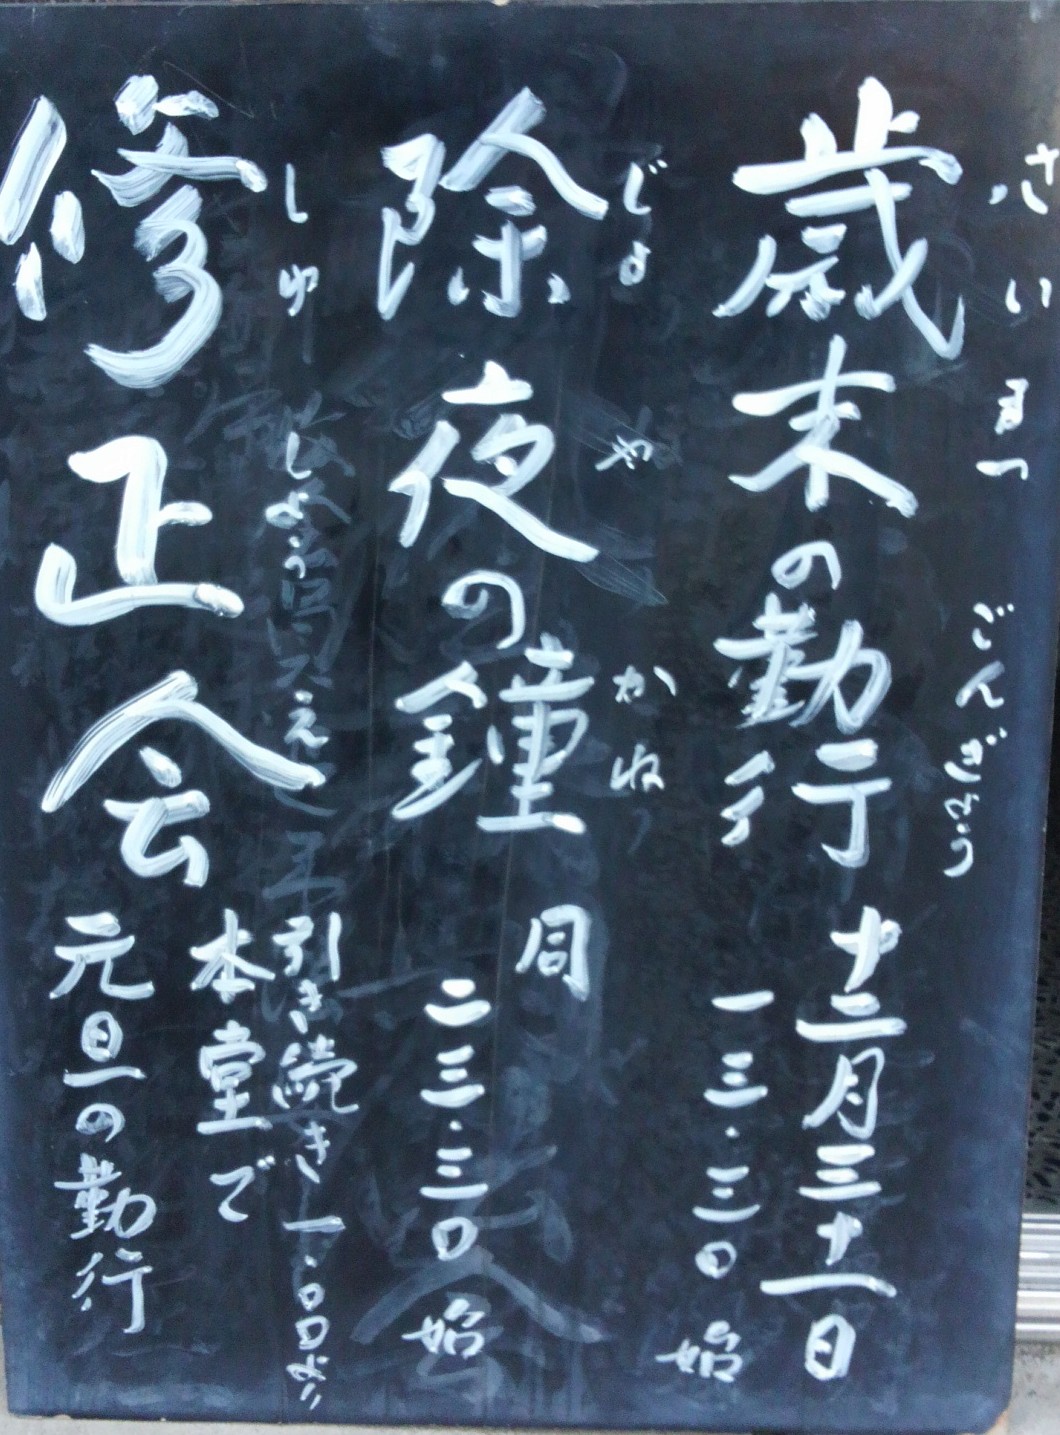 さいまつ ごんぎょう
歳末の勤行
十二月三十一日
一三・三〇始
じょや かね
除夜の鐘
同
二三・三〇始
しゅしょうえ
修正会
引き続き一・〇〇より
本堂で
元旦の勤行